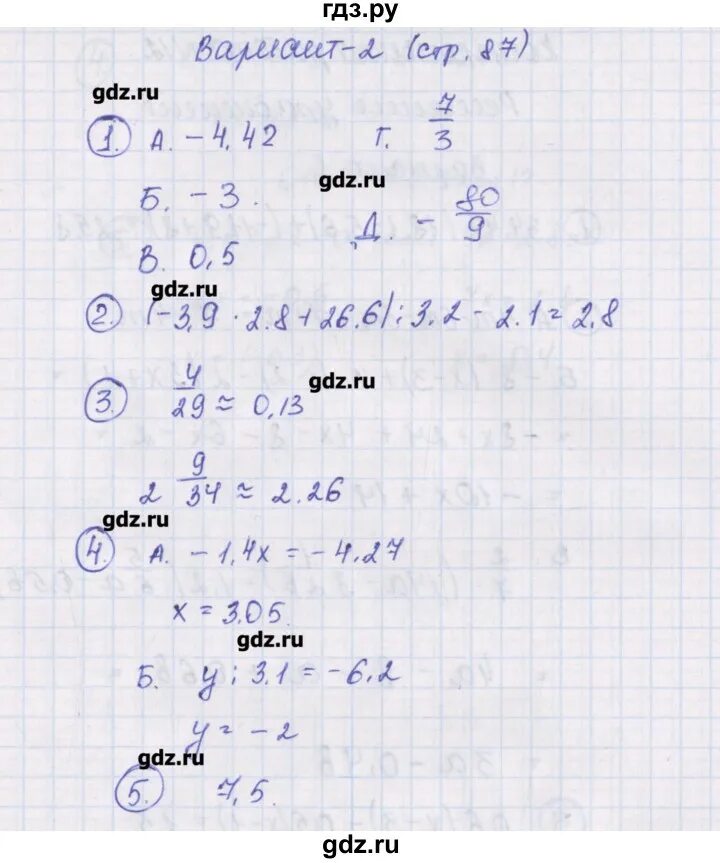 гдз.ру
Вариант-2 (стр. 87)
gdz.ru
1. А. - 4,42 Г. 7/3
gdz.ru
Б. - 3.
Д. - 80/9
В. 0,5
gdz.ru
2. (-3,9 · 2.8 + 26.6) : 3.2 - 2.1 = 2.8
gdz.ru
3. 4/29 ≈ 0,13
2 9/34 ≈ 2.26
gdz.ru
4. А. - 1,4x = - 4.27
x = 3.05
gdz.ru
Б. y : 3.1 = - 6.2
y = - 2
gdz.ru
5. 7,5.
gdz.ru